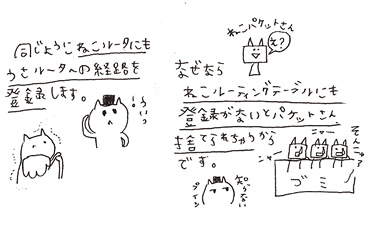 同じようにねこルータにも
うさルータへの経路を
登録します。
らいっ
ねこパケットさん
え?
なぜなら
ねこルーティングテーブルにも
登録がないとパケットさん
捨てられちゃうから
です。
そんニャ
ニャー
ニャー
ゴミ
プイッ